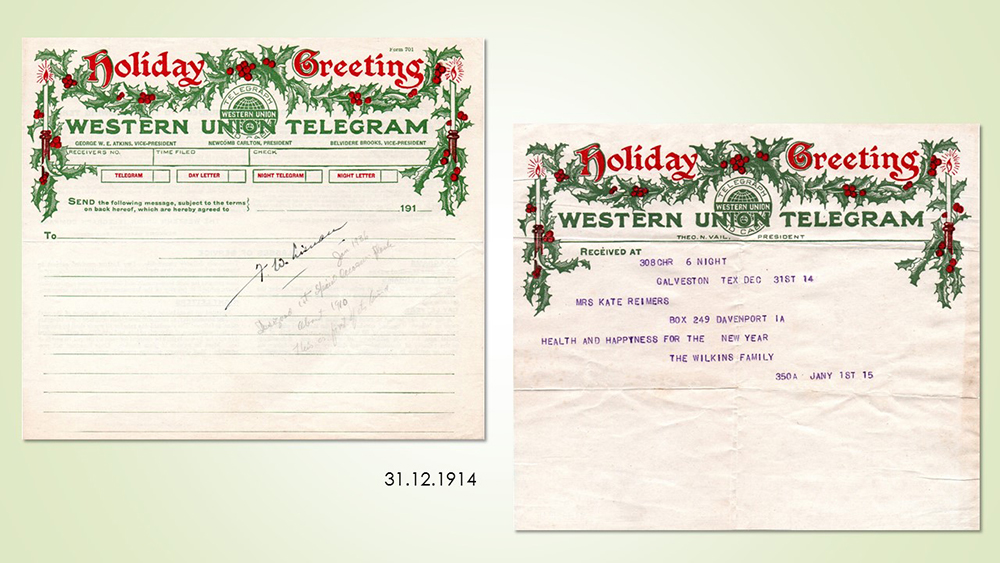 Form 701
Holiday Greeting
TELEGRAPH
WESTERN UNION
WESTERN UNION TELEGRAM
GEORGE W. E. ATKINS, VICE-PRESIDENT NEWCOMB CARLTON, PRESIDENT BELVIDERE BROOKS, VICE-PRESIDENT
RECEIVERS NO. TIME FILED CHECK
TELEGRAM DAY LETTER NIGHT TELEGRAM NIGHT LETTER
SEND the following message, subject to the terms
on back hereof, which are hereby agreed to
191
To
about 1910
31.12.1914
Holiday Greeting
TELEGRAPH
WESTERN UNION
WESTERN UNION TELEGRAM
THEO. N. VAIL, PRESIDENT
RECEIVED AT
308CHR 6 NIGHT
GALVESTON TEX DEC 31ST 14
MRS KATE REIMERS
BOX 249 DAVENPORT IA
HEALTH AND HAPPYNESS FOR THE NEW YEAR
THE WILKINS FAMILY
350A JANY 1ST 15